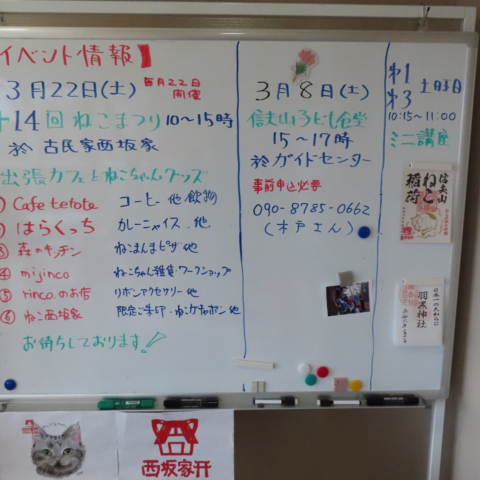 イベント情報】
3月22日(土) 毎月22日
開催
第14回 ねこまつり 10〜15時
於 古民家西坂家
出張カフェとねこちゃんグッズ
① Cafe tetote コーヒー 他 飲物
② はらくっち カレーライス 他
③ 森のキッチン ねこまんまピザ 他
④ mijinco ねこちゃん雑貨・ワークショップ
⑤ rinco.のお店 リボンアクセサリー 他
⑥ ねこ西坂家 限定ご朱印・ねこケチャポン 他
お待ちしております!
3月8日(土)
信夫山子ども食堂
15〜17時
於ガイドセンター
事前申込必要
090-8785-0662
(木戸さん)
第1
第3 土日
10:15〜11:00
ミニ講座
信夫山
ねこ稲荷
日本一の大わらじ
羽黒神社
西坂家